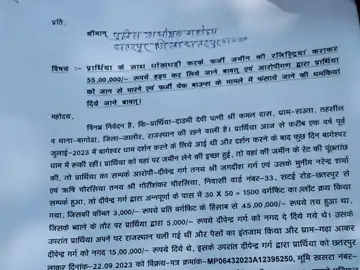 प्रति,
श्रीमान् पुलिस अधीक्षक महोदय
छतरपुर जिला छतरपुर म०प्र०
विषय :- प्रार्थिया के साथ धोखाधड़ी करके फर्जी जमीन की रजिस्ट्रियां कराकर
55,00,000/- रूपये हड़प कर लिये जाने बावत् एवं आरोपीगण द्वारा प्रार्थिया
को जान से मारने एवं फर्जी चेक बाउन्स के मामले में फंसाये जाने की धमकियां
दिये जाने बावत्।
महोदय,
विनम्र निवेदन है, कि-प्रार्थिया-दाडमी देवी पत्नी श्री कमल दास, ग्राम-राउता, तहसील
व थाना-बागोडा, जिला-जालोर, राजस्थान की रहने वाली है। प्रार्थिया आज से करीब एक वर्ष पूर्व
जुलाई-2023 में बागेश्वर धाम दर्शन करने के लिये आई थी और दर्शन करने के बाद कुछ दिन बागेश्वर
धाम में रूकी रही। प्रार्थिया को वहां पर जमीन लेने की इच्छा हुई, तो वहां की जमीन के रेट की पूंछतांछ
की, तो प्रार्थिया का सम्पर्क आरोपी-दीपेन्द्र गर्ग तनय श्री जगदीश गर्ग एवं उसके मुनीम नरेन्द्र शर्मा
एवं ऋषि चौरसिया तनय श्री गौरीशंकर चौरसिया, निवासी वार्ड नम्बर-33, सटई रोड-छतरपुर से
सम्पर्क हुआ, तो दीपेन्द्र गर्ग द्वारा अन्नपूर्णा के पास में 30 X 50 = 1500 वर्गफिट का प्लॉट क्रय किया
गया, जिसकी कीमत 3,000/- रूपये प्रति वर्गफिट के हिसाब से 45,00,000/- रूपये तय हुआ था,
जिसके ब्याने के तौर पर प्रार्थिया द्वारा 5,000/- रूपये दीपेन्द्र गर्ग को नगद दे दिये गये थे। उसके
उपरांत प्रार्थिया अपने घर राजस्थान चली गई थी और पैसों का इंतजाम किया और ग्राम-गढ़ा आकर
दीपेन्द्र गर्ग को नगद 15,00,000/- रूपये दिये थे, इसके उपरांत दीपेन्द्र गर्ग द्वारा प्रार्थिया को छतरपुर
लाकर दिनांक-22.09.2023 को विक्रय-पत्र क्रमांक-MP06432023A12395250, भूमि खसरा नम्बर-